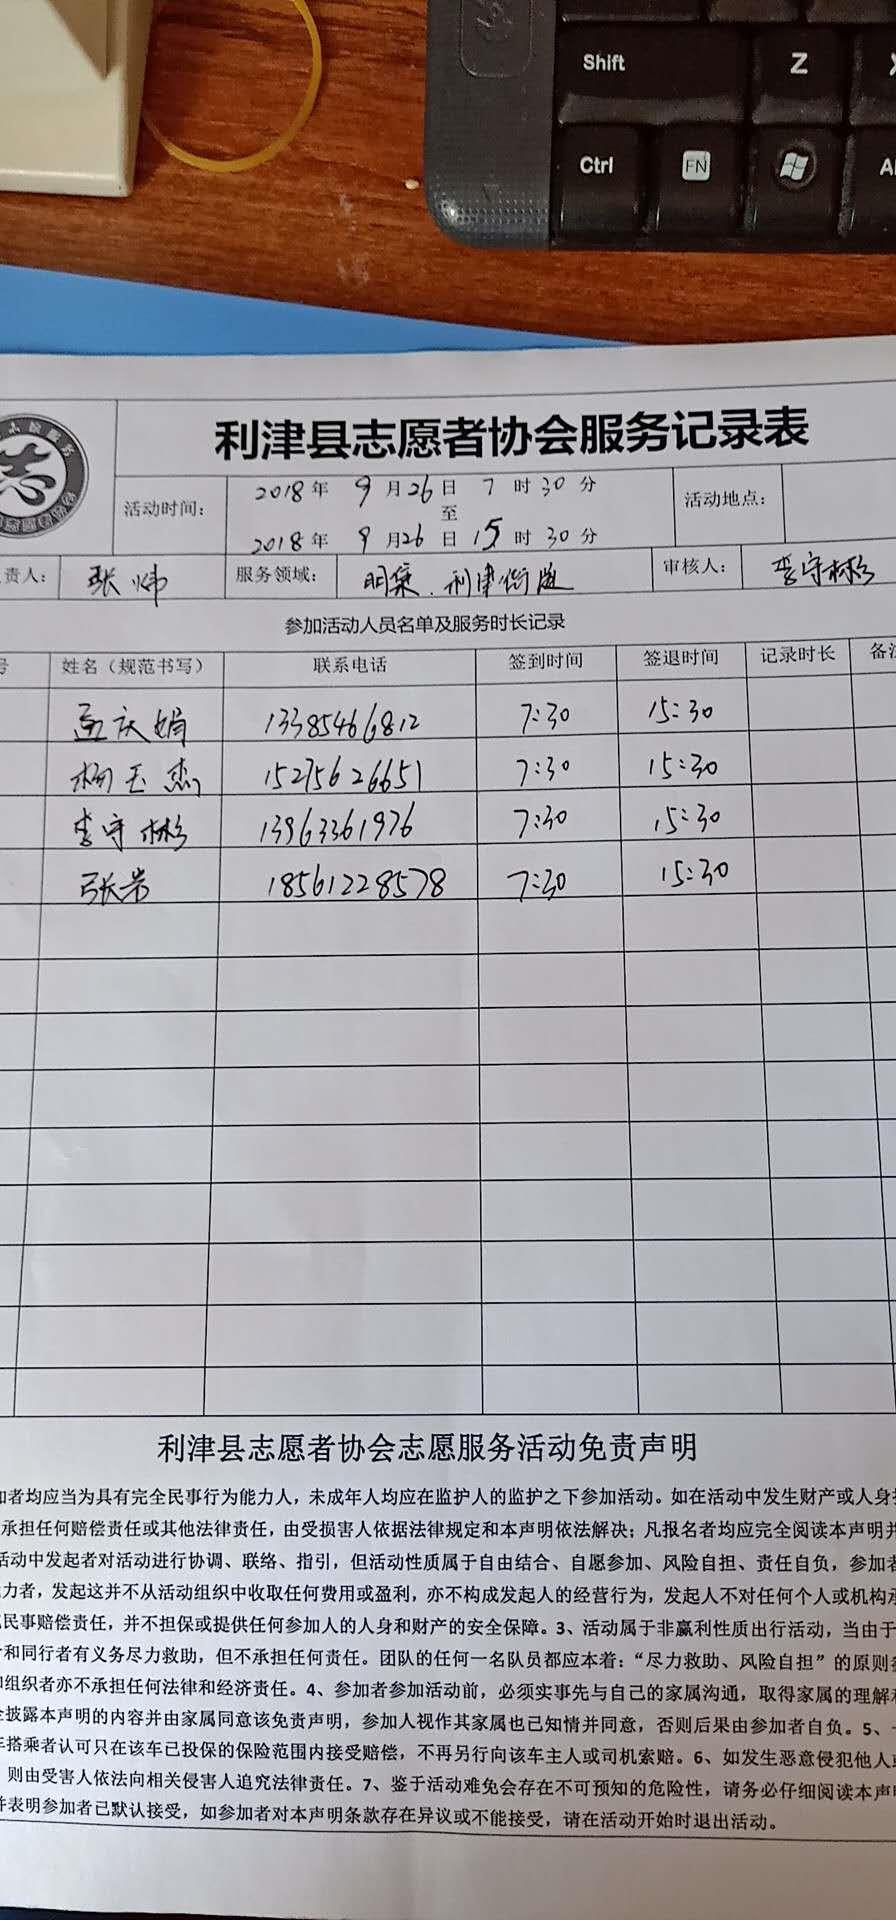 Shift
Z
Ctrl
FN
利津县志愿者协会服务记录表
活动时间：
2018年 9月26日 7时30分
至
2018年 9月26日 15时30分
活动地点：
责人：
服务领域：
明集、利津街道
审核人：
李守彬
参加活动人员名单及服务时长记录
号 姓名（规范书写） 联系电话 签到时间 签退时间 记录时长 备注
孟庆娟 13385466812 7:30 15:30
杨玉杰 15275626651 7:30 15:30
李守彬 13963361976 7:30 15:30
张岩 18561228578 7:30 15:30
利津县志愿者协会志愿服务活动免责声明
加者均应当为具有完全民事行为能力人，未成年人均应在监护人的监护之下参加活动。如在活动中发生财产或人身
承担任何赔偿责任或其他法律责任，由受损害人依据法律规定和本声明依法解决；凡报名者均应完全阅读本声明并
活动中发起者对活动进行协调、联络、指引，但活动性质属于自由结合、自愿参加、风险自担、责任自负，参加者
力者，发起这并不从活动组织中收取任何费用或盈利，亦不构成发起人的经营行为，发起人不对任何个人或机构承
民事赔偿责任，并不担保或提供任何参加人的人身和财产的安全保障。3、活动属于非赢利性质出行活动，当由于
和同行者有义务尽力救助，但不承担任何责任。团队的任何一名队员都应本着：“尽力救助、风险自担”的原则
组织者亦不承担任何法律和经济责任。4、参加者参加活动前，必须实事先与自己的家属沟通，取得家属的理解
披露本声明的内容并由家属同意该免责声明，参加人视作其家属也已知情并同意，否则后果由参加者自负。5、
搭乘者认可只在该车已投保的保险范围内接受赔偿，不再另行向该车主人或司机索赔。6、如发生恶意侵犯他人
则由受害人依法向相关侵害人追究法律责任。7、鉴于活动难免会存在不可预知的危险性，请务必仔细阅读本声明
并表明参加者已默认接受，如参加者对本声明条款存在异议或不能接受，请在活动开始时退出活动。